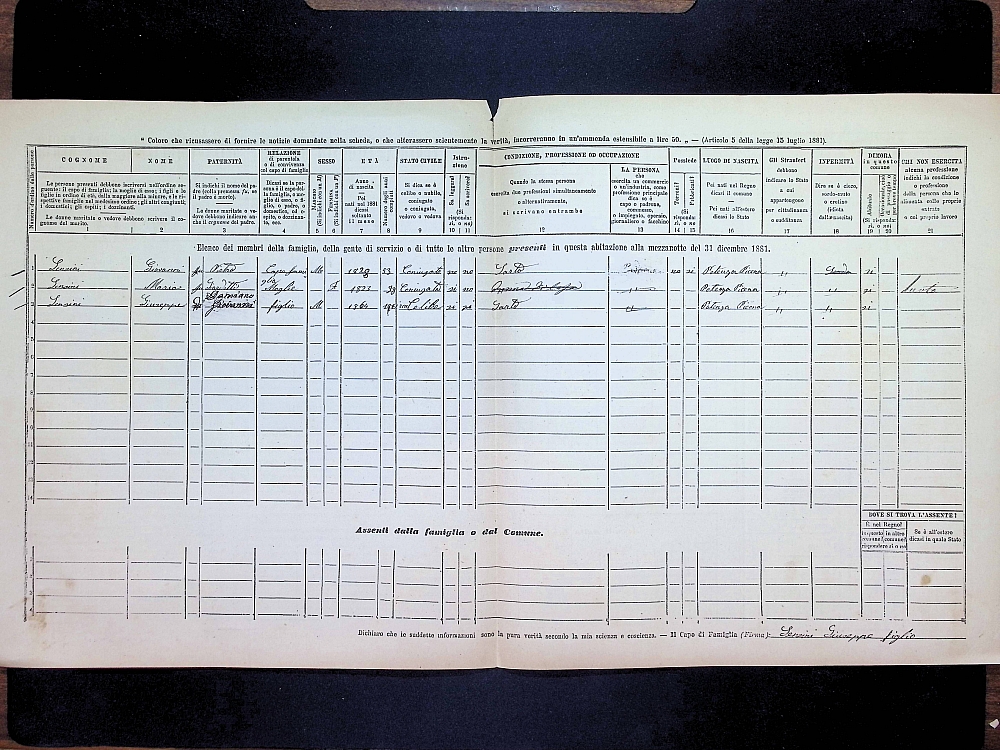 " Coloro che ricusassero di fornire le notizie domandate nella scheda, o che alterassero scientemente la verità, incorreranno in un'ammenda estensibile a lire 50. „ — (Articolo 5 della legge 15 luglio 1881).
COGNOME NOME PATERNITÀ RELAZIONE di parentela o di convivenza col capo di famiglia SESSO ETÀ STATO CIVILE Istruzione CONDIZIONE, PROFESSIONE OD OCCUPAZIONE Possiede LUOGO DI NASCITA Gli Stranieri debbono indicare lo Stato a cui appartengono per cittadinanza o sudditanza INFERMITÀ DIMORA in questo comune CHI NON ESERCITA alcuna professione indichi la condizione o professione della persona che lo alimenta colle proprie entrate o col proprio lavoro
Le persone presenti debbono inscriversi nell'ordine seguente: il capo di famiglia; la moglie di esso; i figli e le figlie in ordine di età, dalla maggiore alla minore, e le rispettive famiglie nel medesimo ordine; gli altri congiunti; i domestici; gli ospiti; i dozzinanti.
Le donne maritate o vedove debbono scrivere il cognome del marito.
Si indichi il nome del padre (colla premessa fu, se il padre è morto).
Le donne maritate o vedove debbono indicare anche il cognome del padre.
Dicasi se la persona è il capo della famiglia, o moglie di esso, o figlio, o padre, o domestico, od ospite, o dozzinante, ecc.
Anno di nascita
Pei nati nel 1881 dicasi soltanto il mese
Si dica se è celibe o nubile, coniugato o coniugata, vedovo o vedova
Sa leggere?
Sa scrivere?
(Si risponda: sì, o no)
Quando la stessa persona esercita due professioni simultaneamente o alternativamente, si scrivano entrambe
LA PERSONA che esercita un commercio o un'industria, come professione principale dica se è capo o padrona, commesso, o impiegato, operaio, giornaliero o facchino
Terreni?
Fabbricati?
Pei nati nel Regno dicasi il comune
Pei nati all'estero dicasi lo Stato
Dire se è cieco, sordo-muto o cretino (idiota dall'nascita)
1 2 3 4 5 6 7 8 9 10 11 12 13 14 15 16 17 18 19 20 21
Elenco dei membri della famiglia, della gente di servizio o di tutte le altre persone presenti in questa abitazione alla mezzanotte del 31 dicembre 1881.
1 Sensini Giovanni fu Pietro Capo fam M 1828 53 Coniugato no no Sarto no no Potenza Picena " sì
2 Sensini Maria fu Moglie F 1823 Coniugata sì no Potenza Picena " " sì
Damiano
3 Sensini Giuseppe di Giovanni figlio M 1864 Celibe sì Sarto Potenza Picena " " sì
DOVE SI TROVA L'ASSENTE?
Assenti dalla famiglia o dal Comune.
È nel Regno?
in questo comune? in altro comune?
rispondere sì o no
Se è all'estero dicasi in quale Stato
Dichiaro che le suddette informazioni sono la pura verità secondo la mia scienza e coscienza. — Il Capo di Famiglia (Firma): Sensini Giuseppe figlio